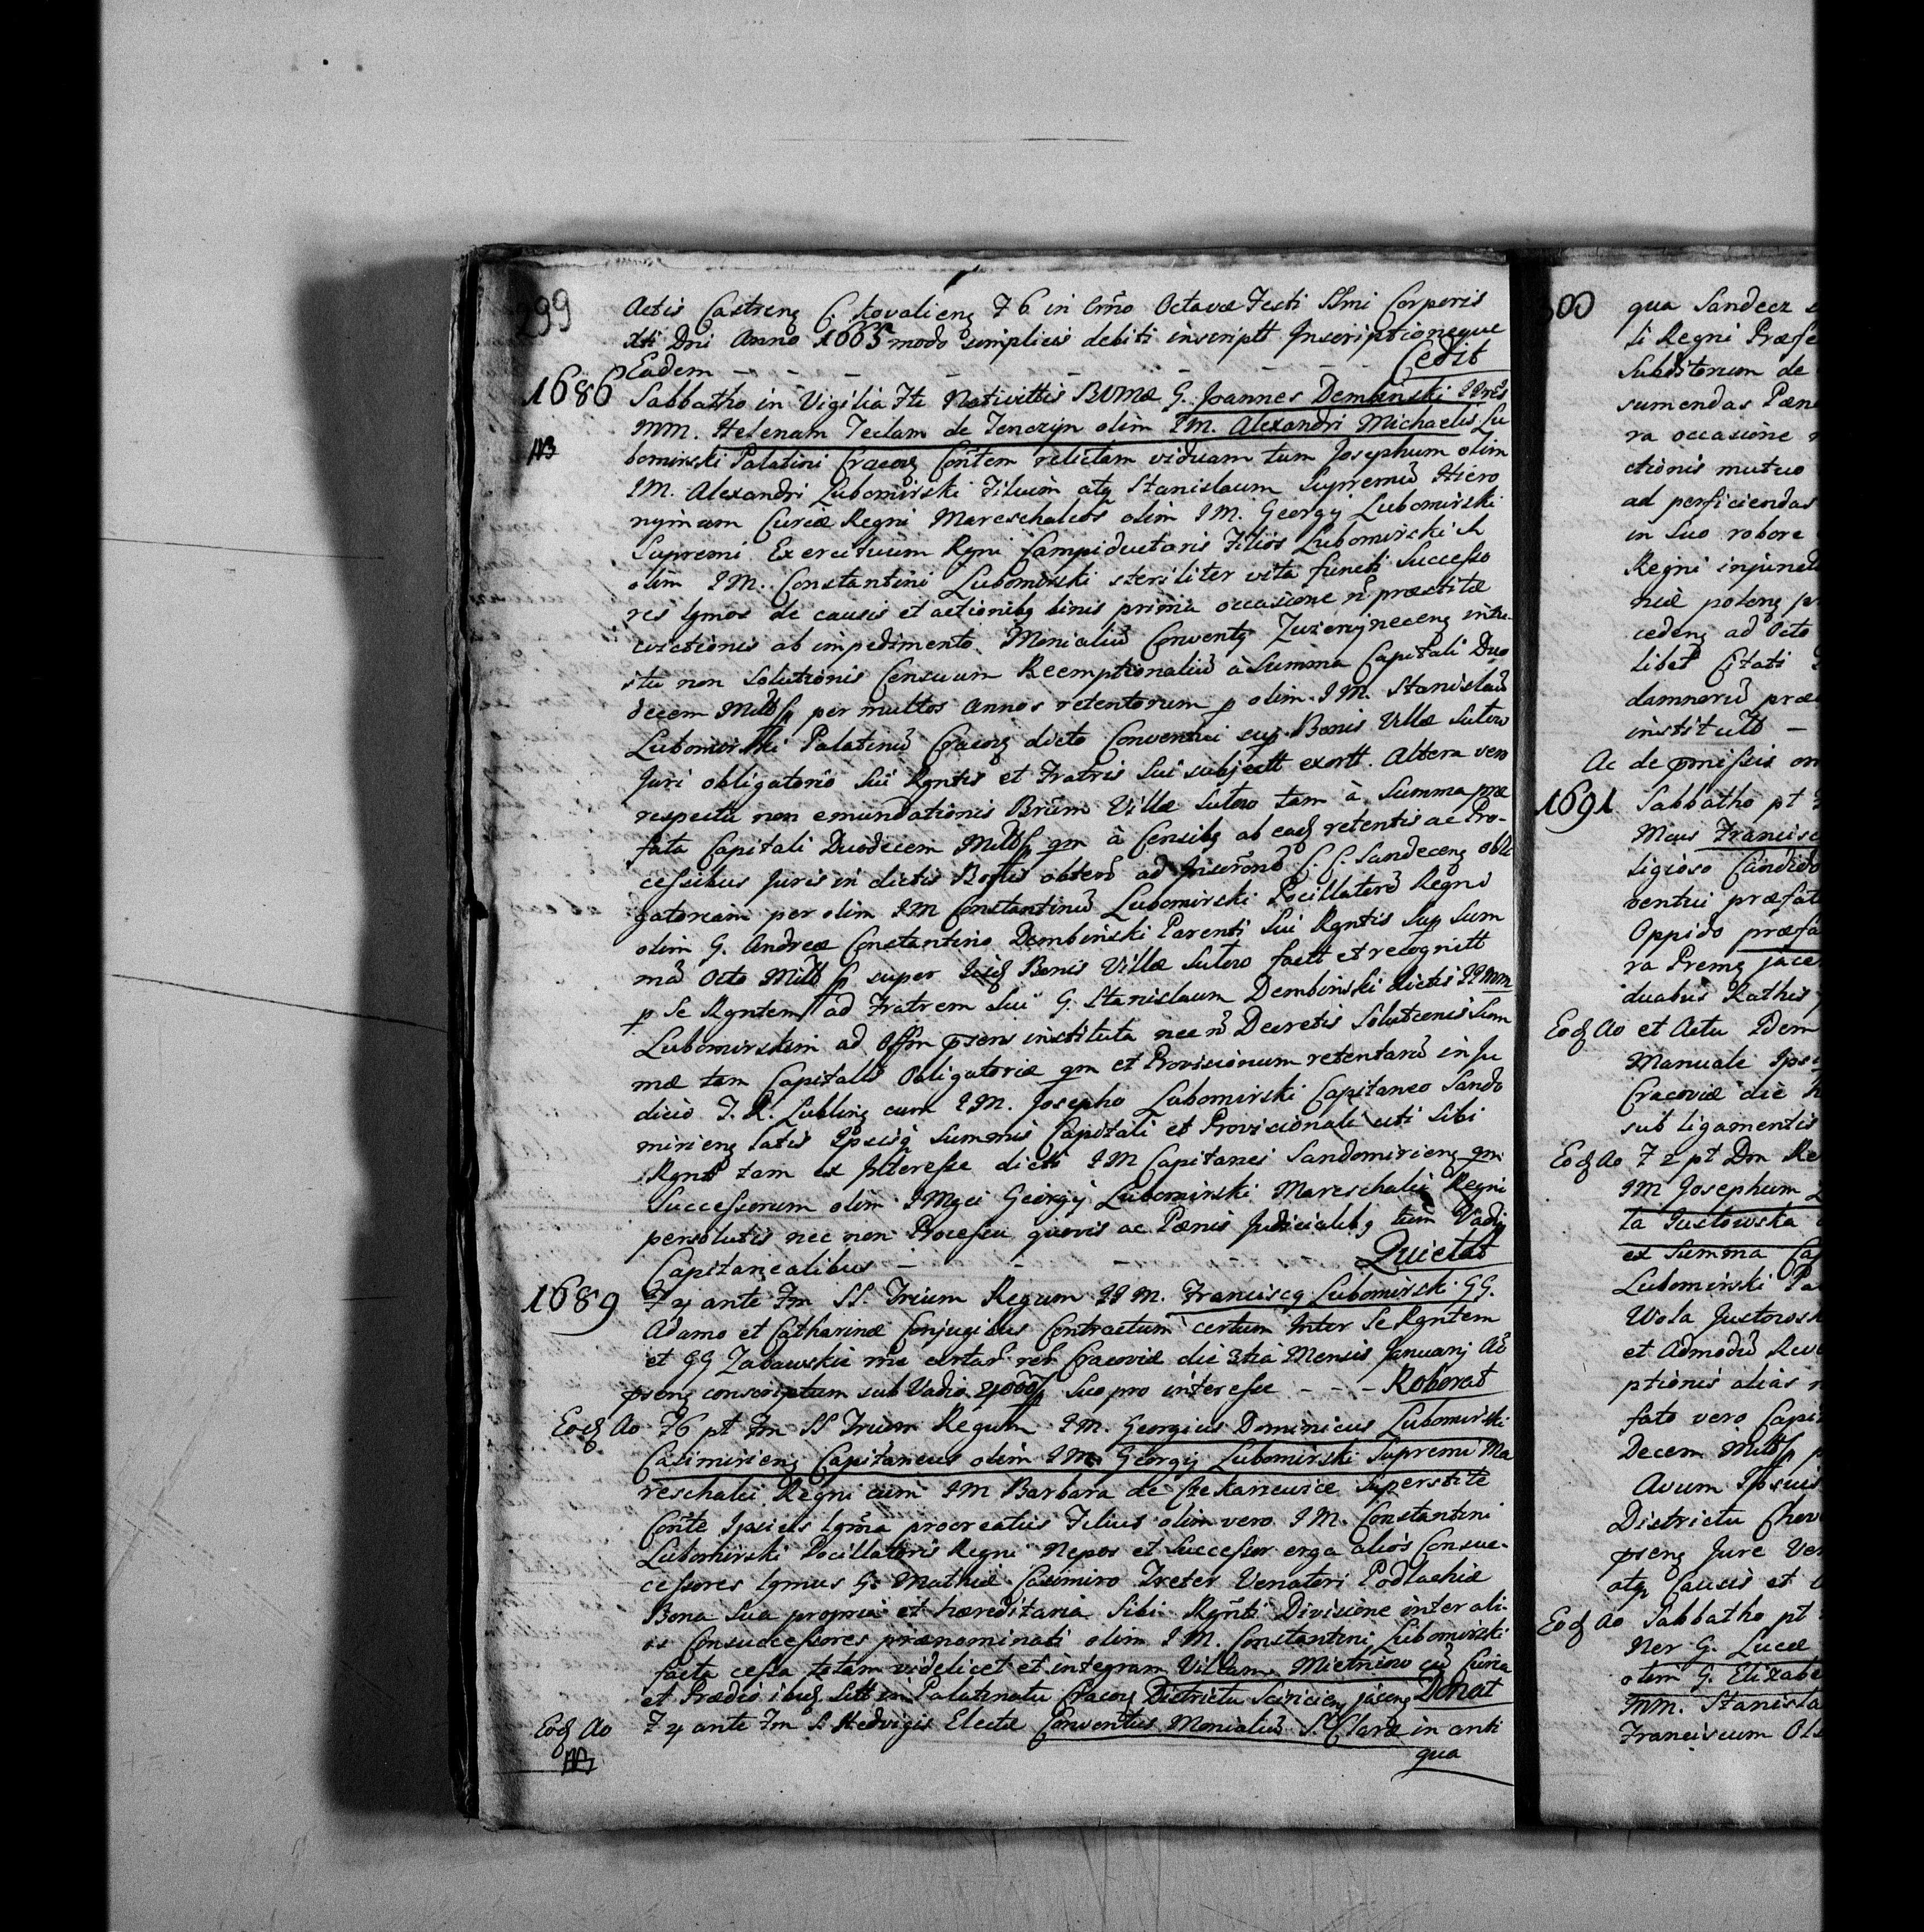 299
Actis Castreng C. Kovalieng F 6 in Crño Octavæ Festi SSmi Corporis
Xti Dni Anno 1665 modo simplicis debiti inscriptt Inscriptioneque
Eadem - - - - - Cedit
1686 Sabbatho in Vigilia Fti Nativittis BVMæ G. Joannes Dembinski
NB
MM. Helenam Teclam de Tenczyn olim IM. Alexandri Michaelis Lu
bomirski Palatini Cracovg Coñtem relictam viduam tum Josephum olim
IM. Alexandri Lubomirski Filium atq Stanislaum Supremũ Hiero
nymum Curiæ Regni Mareschalcos olim IM. Georgij Lubomirski
Supremi Exercituum Rgni Campiductoris Filios Lubomirski
olim IM. Constantini Lubomirski steriliter vita functi Successo
res Igmos de causis et actionibg binis prima occasione ñ præstitæ
evictionis ab impedimento Monialiũ Conventg intu-
itu non Solutionis Censuum Reemptionaliũ à Summa Capitali Duo
decem Mill per multos Annos retentorum p olim IM. Stanislaũ
Lubomirski Palatinũ Cracovg dicto Conventui sup Bonis Villæ Sutow
Juri obligatorio Sui Rgntis et Fratris Sui subjectt exortt. Altera vero
respectu non emundationis Bnũm Villæ Sutow tam à Summa præ
fata Capitali Duodecem Mill qm à Censibg ab eadg retentis ac Pro-
cessibus Juris in dictis Bonis obtent ad C. C. Sandeceng obli
gatoriam per olim IM Constantinũ Lubomirski Pocillatorũ Regni
olim G. Andreæ Constantino Dembinski Parenti Sui Rgntis Sup Sum
mã Octo Mill super Bonis Villæ Sutow factt et recognitt
p Se Rgntem ad Fratrem Sui G. Stanislaum Dembinski dictis
Lubomirskim ad Offm psens instituta nec ñ Decretis Solutionis Sum
mæ tam Capitalis Obligatoriæ qm et Provisionum retentarũ in Ju
dicio T. R. Lubling cum IM. Josepho Lubomirski Capitaneo Sando
mirieng latis Ipsisq Summis Capitali et Provisionali uti Sibi
Rgnti tam ex Interesse dicti IM Capitanei Sandomirieng qm
Successorum olim IMgci Georgij Lubomirski Mareschalci Regni
persolutis nec non Processu quovis ac Pænis Judicialibg tum Vadij
Capitanealibus - - - Quietat
1689 F 4 ante Fm SS. Trium Regum IM. Franciscg Lubomirski GG.
Adamo et Catharinæ Conjugibus Contractum certum Inter Se Rgntem
et GG Zabawskie Cracoviæ die 3tia Mensis Januarij Aõ
pseng conscriptum sub Vadio 4000 Suo pro interesse - - - Roborat
Eodg Ao F6 pt Fm SS Trium Regum IM. Georgius Dominicus Lubomirski
Casimirieng Capitaneus olim IM. Georgij Lubomirski Supremi Ma
reschalci Regni cum IM Barbara de Superstite
Coñte Ipsius Igma procreatus Filius olim vero IM. Constantini
Lubomirski Pocillatoris Regni Nepos et Successor erga alios Consuc-
cessores Igmus G. Mathiæ Casimiro Treter Venatori Podlachiæ
Bona Sua propria et hæreditaria Sibi Rgñti Divisione inter ali-
os Consuccessores prænominati olim IM. Constantini Lubomirski
facta cessa totam videlicet et integram Villam Mietniow cũ Curia
et Prædio ibidg Sitt in Palatinatu Cracovg Districtu jaceng Donat
Eodg Ao F 4 ante Fm S. Hedvigis Electæ Conventus Monialiũ S. Claræ in anti
NB
qua
300 qua Sandecz
ti Regni Præfe
Subditorum de
sumendas Pæn
ra occasione
ctionis mutuo
ad perficiendas
in Suo robore
Regni injunct
ciæ poleng
cedeng ad Octo
libet Citati
damnorũ præ
institutt -
Ac de pmissis
1691 Sabbatho pt
Meus Francisc
ligioso Candido
ventui præfat
Oppido præfa
ra Premg jace
duabus Rathis
Eodg Ao et Actu Idem
Manuale Ips
Cracoviæ die
sub ligamentis
Eodg Ao F 2 pt Dm Re
IM Josephum
la Justowska
ex Summa Cap
Lubomirski Pa
Wola Justowsk
et Admodũ Rev
ptionis alias
fato vero Capi
Decem Mill
Avum Ipsius
Districtu
pseng Jure Ven
atq Causis et
Eodg Ao Sabbatho pt
Ner G. Lucæ
olim G. Elizabe
MM. Stanisla
Franciscum